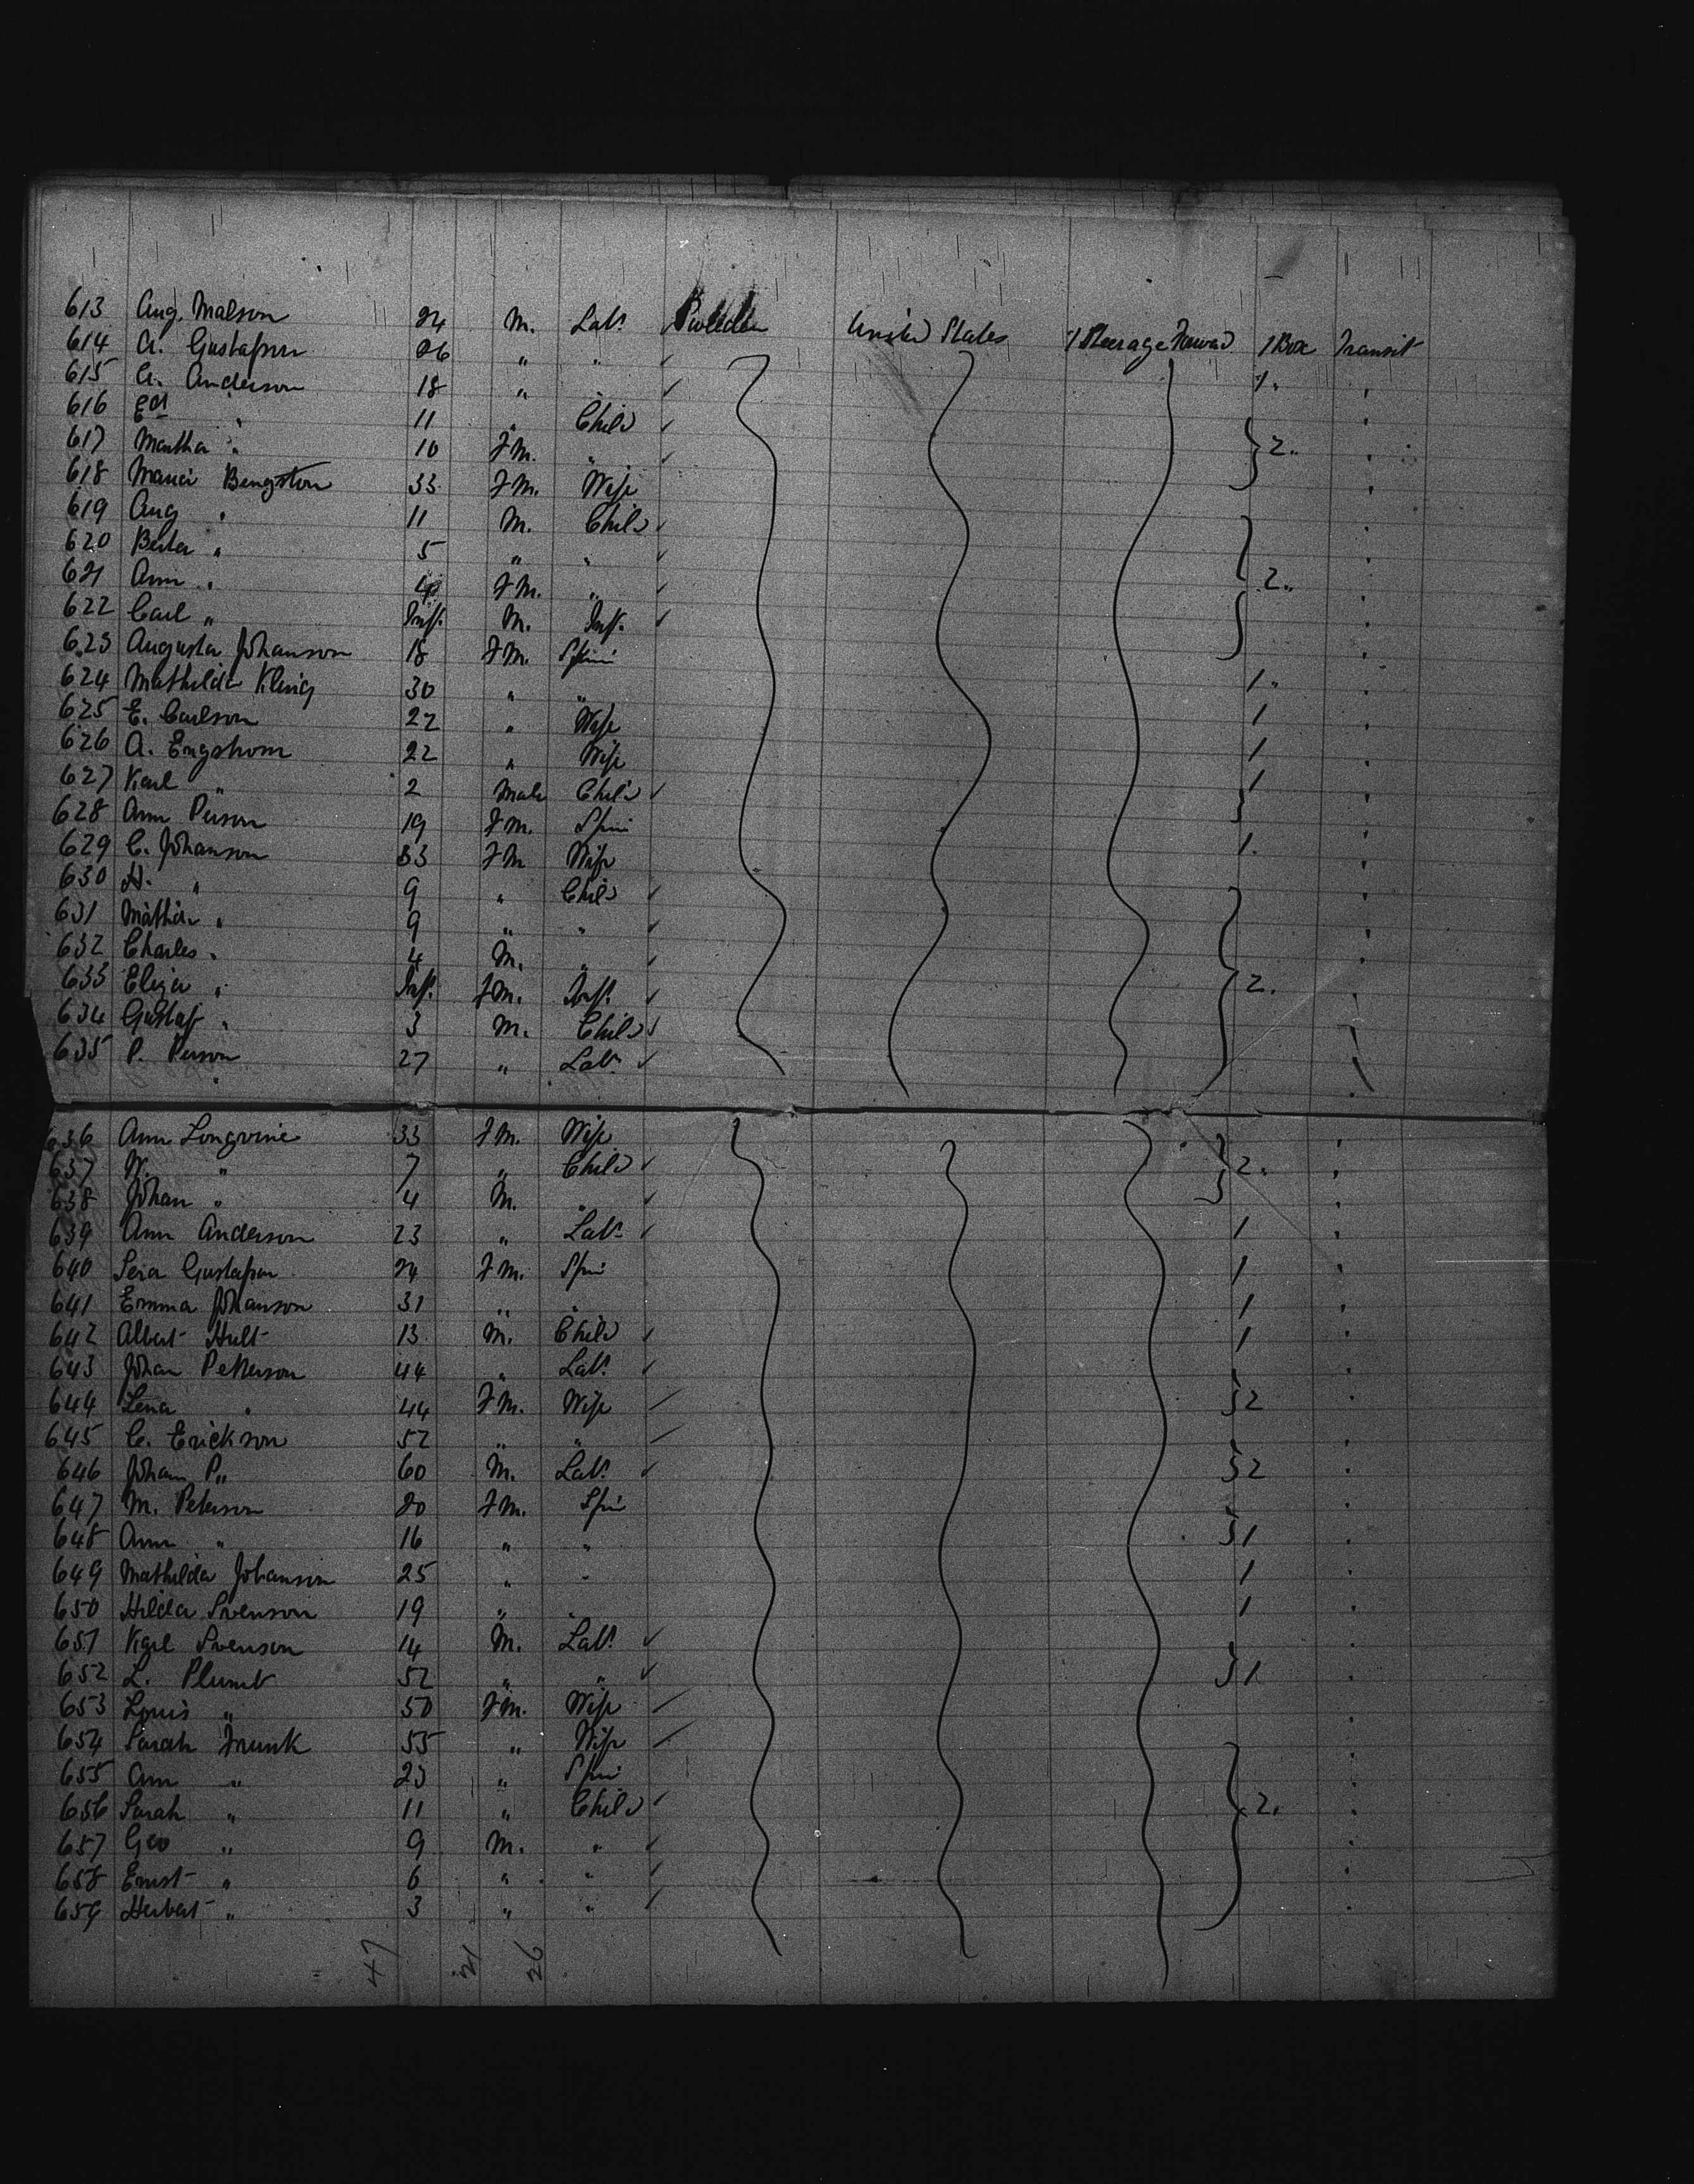 613 Aug. Malson 24 M. Labr Sweden United States Steerage Forward 1 Box Transit
614 A. Gustafson 26 " " 1 "
615 A. Anderson 18 " "
616 Ed " 11 " Child "
617 Martha " 10 F M. " 2 "
618 Maria Bengston 33 F M. Wife "
619 Aug " 11 M. Child
620 Berta " 5 " " "
621 Ann " 4 F M. " 2 "
622 Carl " Inft. M. Inft. "
623 Augusta Johanson 18 F M. Spin "
624 Mathilda Kling 30 " " 1 "
625 E. Carlson 22 " Wife 1 "
626 A. Engstrom 22 " Wife 1 "
627 Karl " 2 Male Child 1 "
628 Ann Person 19 F M. Spin "
629 C. Johanson 33 F M Wife 1 "
630 H. " 9 " Child "
631 " 9 " " "
632 Charles " 4 M. " "
633 Eliza " Inft. F M. Inft. 2
634 Gustaf " 3 M. Child
635 P. Person 27 " Labr "
636 Ann 33 F M. Wife "
637 " 7 " Child 2 "
638 Johan " 4 M. " "
639 Ann Anderson 23 " Labr 1 "
640 Gustafson 24 F M. Spin 1 "
641 Emma Johanson 31 " " 1 "
642 Albert Hult 13 M. Child 1 "
643 Johan Petterson 44 " Labr "
644 Lena " 44 F M. Wife 2 "
645 C. Erickson 52 " " "
646 Johan P. " 60 M. Labr 2 "
647 M. Peterson 20 F M. Spin "
648 Ann " 16 " " 1 "
649 Mathilda Johanson 25 " " 1 "
650 Hilda Svenson 19 " " 1 "
651 Karl Svenson 14 M. Labr "
652 L. 52 " " 1 "
653 Louis " 50 F M. Wife "
654 Sarah Frunk 55 " Wife "
655 Ann " 23 " Spin "
656 Sarah " 11 " Child 2 "
657 Geo " 9 M. " "
658 Ernst " 6 " " "
659 Herbert " 3 " " "
47 21 26